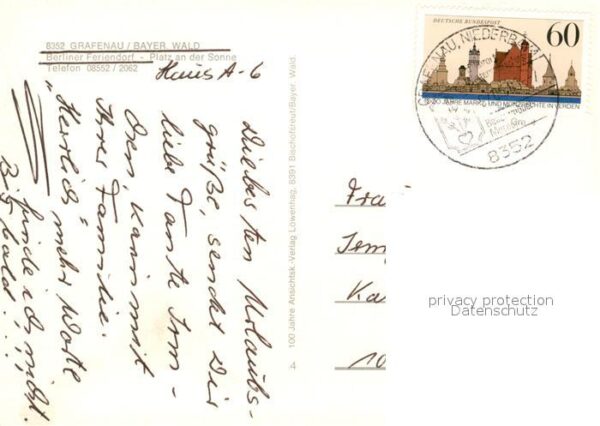 8352 GRAFENAU / BAYER. WALD
Berliner Feriendorf - Platz an der Sonne
Telefon 08552 / 2062
Haus A-6
Liebe
Urlaubs-
grüße, sendet Dir
liebe Tante Irm-
chen, Karin mit
Ihrer Familie.
"Herrlich" mehr Worte
finde ich nicht.
Bis bald!..
100 Jahre Ansichtsk.-Verlag Löwenhag, 8391 Bischofsreut/Bayer. Wald.
4
DEUTSCHE BUNDESPOST
60
1000 JAHRE MARKT- UND MÜNZRECHTE IN VERDEN
GRAFENAU, NIEDERBAY
8352
10
privacy protection
Datenschutz